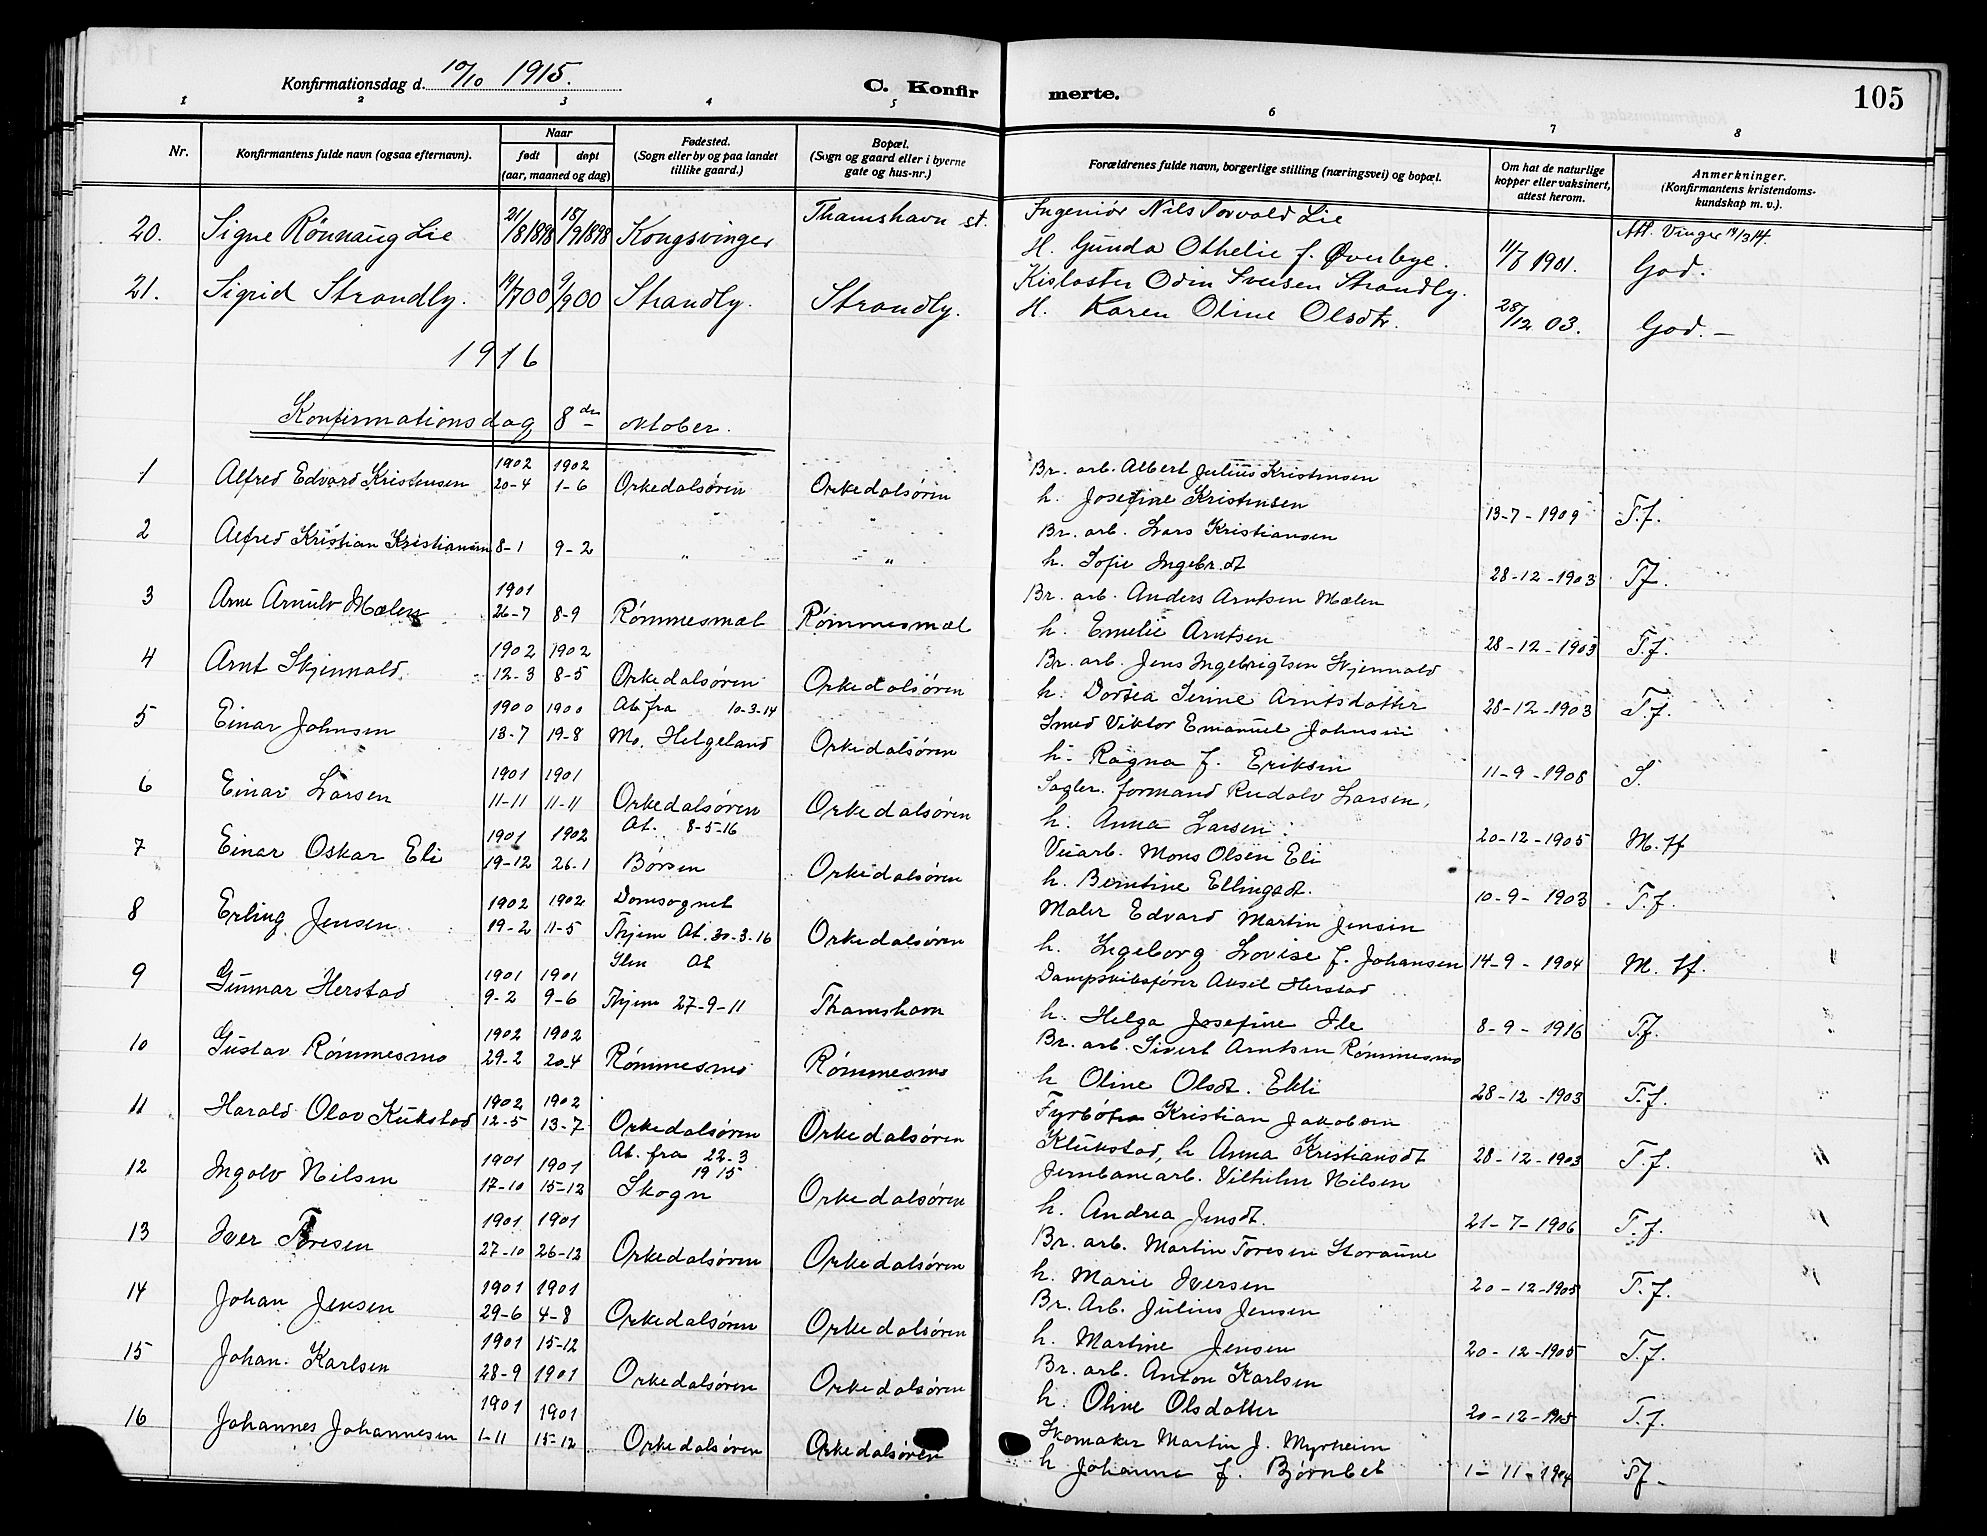 Konfirmationsdag d. 10/10 1915.
C. Konfir merte.
105
1 2 3 4 5 6 7 8
Nr.
Konfirmantens fulde navn (ogsaa efternavn).
Naar
født døpt
(aar, maaned og dag)
Fødested.
(Sogn eller by og paa landet
tillike gaard.)
Bopæl.
(Sogn og gaard eller i byerne
gate og hus-nr.)
Forældrenes fulde navn, borgerlige stilling (næringsvei) og bopæl.
Om hat de naturlige
kopper eller vaksinert,
attest herom.
Anmerkninger.
(Konfirmantens kristendoms-
kundskap m. v.).
20. Signe Rönnaug Lie 21/8 1898 18/9 1898 Kongsvinger Thamshavn st. Ingeniör Nils Torvald Lie
H. Gunda Othelie f. Øverbye. 11/8 1901. Att. Vinger 19/3 14. God.
21. Sigrid Strandly. 19/7 00 9/9 00 Strandly. Strandly. Kislaster Odin Svensen Strandly.
H. Karen Oline Olsdtr. 28/12 03. God. —
1916
Konfirmationsdag 8de oktober.
1 Alfred Edvard Kristensen 1902 20-4 1902 1-6 Orkedalsören Orkedalsören Br. arb. Albert Julius Kristensen
h. Josefine Kristensen 13-7-1909 T.f.
2 Alfred Kristian Kristiansen 8-1 9-2 " " Br. arb. Lars Kristiansen
h. Sofie Ingebr.dt 28-12-1903 Tf.
3 Arne Arnulv Mælen 1901 26-7 8-9 Römmesmæl Römmesmæl Br. arb. Anders Arntsen Mælen
h. Emelie Arntsen 28-12-1903 T.f.
4 Arnt Skjenvald. 1902 12-3 1902 8-5 Orkedalsören Orkedalsören Br. arb. Jens Ingebrigtsen Skjenvald
h. Dortea Serine Arntsdatter 28-12-1903 T.f.
5 Einar Johnsen 1900 13-7 1900 19-8 At. fra 10-3-14 Mo. Helgeland Orkedalsören Smed Viktor Emanuel Johnsen
h. Ragna f. Eriksen 11-9-1908 S.
6 Einar Larsen 1901 11-11 1901 11-11 Orkedalsören Orkedalsören Sagbr. formand Rudolv Larsen,
h. Anna Larsen 20-12-1905 M. tf
7 Einar Oskar Eli 1901 19-12 1902 26-1 At. 8-5-16 Börsen Orkedalsören Veiarb. Mons Olsen Eli
h. Berntine Ellingsdt. 10-9-1903 T.f.
8 Erling Jensen 1902 19-2 1902 11-5 Domsognet Thjem At. 30-3-16 Orkedalsören Maler Edvard Martin Jensen
h. Ingeborg Lovise f. Johansen 14-9-1904 M. tf.
9 Gunnar Herstad 1901 9-2 1901 9-6 Ilen At Thjem 27-9-11 Thamshavn Dampskibsfører Aksel Herstad
h. Helga Josefine Ile 8-9-1916 Tf.
10 Gustav Römmesmo 1902 29-2 1902 20-4 Römmesmo Römmesmo Br. arb. Sivert Arntsen Römmesmo
h Oline Olsdt. Ekli 28-12-1903 T.f.
11 Harald Olav Klukstad 1902 12-5 1902 13-7 Orkedalsören Orkedalsören Fyrböter Kristian Jakobsen
Klukstad, h Anna Kristiansdt 28-12-1903 T.f.
12 Ingolv Nilsen 1901 17-10 1901 15-12 At. fra 22-3 1915 Skogn Orkedalsören Jernbanearb. Vilhelm Nilsen
h. Andrea Jensdt. 21-7-1906 T.f.
13 Iver Toresen 1901 27-10 1901 26-12 Orkedalsören Orkedalsören Br. arb. Martin Toresen Storaune
h. Marie Iversen 20-12-1905 T.f.
14 Johan Jensen 1901 29-6 1901 4-8 Orkedalsören Orkedalsören Br. Arb. Julius Jensen
h. Martine Jensen 20-12-1905 T.f.
15 Johan Karlsen 1901 28-9 15-12 1901 Orkedalsören Orkedalsören Br. arb. Anton Karlsen
h. Oline Olsdatter 20-12-1905 T.f.
16 Johannes Johannesen 1901 1-11 1901 15-12 Orkedalsören Orkedalsören Skomaker Martin J. Myrheim
h Johanna f. Björnbet 1-11-1904 Tf-